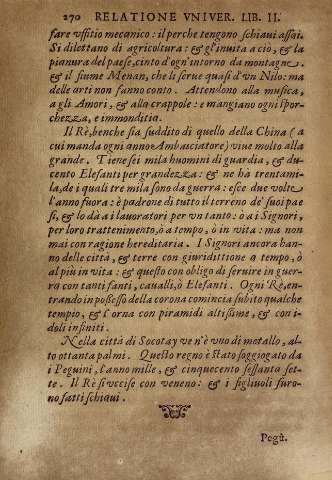 270 RELATIONE VNIVER. LIB. II.
fare vffitio mecanico: il perche tengono schiaui assai.
Si dilettano di agricoltura: & gl'inuita a ciò, & la
pianura del paese, cinto d'ogn'intorno da montagne.
& il fiume Menan, che li serue quasi d'vn Nilo: ma
delle arti non fanno conto. Attendono alla musica,
a gli Amori, & alle crappole: e mangiano ogni spor-
chezza, e immonditia.
Il Rè, benche sia suddito di quello della China (a
cui manda ogni anno Ambasciatore) viue molto alla
grande. Tiene sei mila huomini di guardia, & du-
cento Elefanti per grandezza: & ne hà trentami-
la, de i quali tre mila sono da guerra: esce due volte
l'anno fuora: è padrone di tutto il terreno de' suoi pae
si, & lo dà a i lauoratori per vn tanto: ò a i Signori,
per loro trattenimento, ò a tempo, ò in vita: ma non
mai con ragione hereditaria. I Signori ancora han-
no delle città, & terre con giuridittione a tempo, ò
al più in vita: & questo con obligo di seruire in guer-
ra con tanti fanti, caualli, ò Elefanti. Ogni Rè, en-
trando in possesso della corona comincia subito qualche
tempio, & l'orna con piramidi altissime, & con i-
doli infiniti.
Nella città di Socotay ve n'è vno di metallo, al-
to ottanta palmi. Questo regno è stato soggiogato da
i Peguini, l'anno mille, & cinquecento sessanta set-
te. Il Rè si vccise con veneno: & i figliuoli furo-
no fatti schiaui.
Pegù.